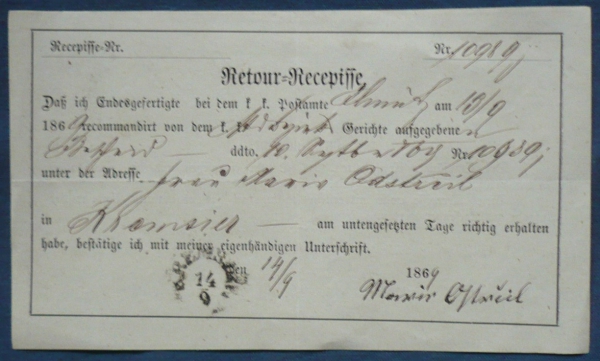 Recepisse-Nr. Nr. 10989
Retour-Recepisse,
Daß ich Endesgefertigte bei dem k. k. Postamte Olmütz am 10/9
1869 recommandirt von dem k. k. Gerichte aufgegebenen
ddto. 10. Nr. 10989
unter der Adresse Frau Marie Odstrčil
in Kremsier — am untengesetzten Tage richtig erhalten
habe, bestätige ich mit meiner eigenhändigen Unterschrift.
KREMSIER 14/9
den 14/9 1869
Marie